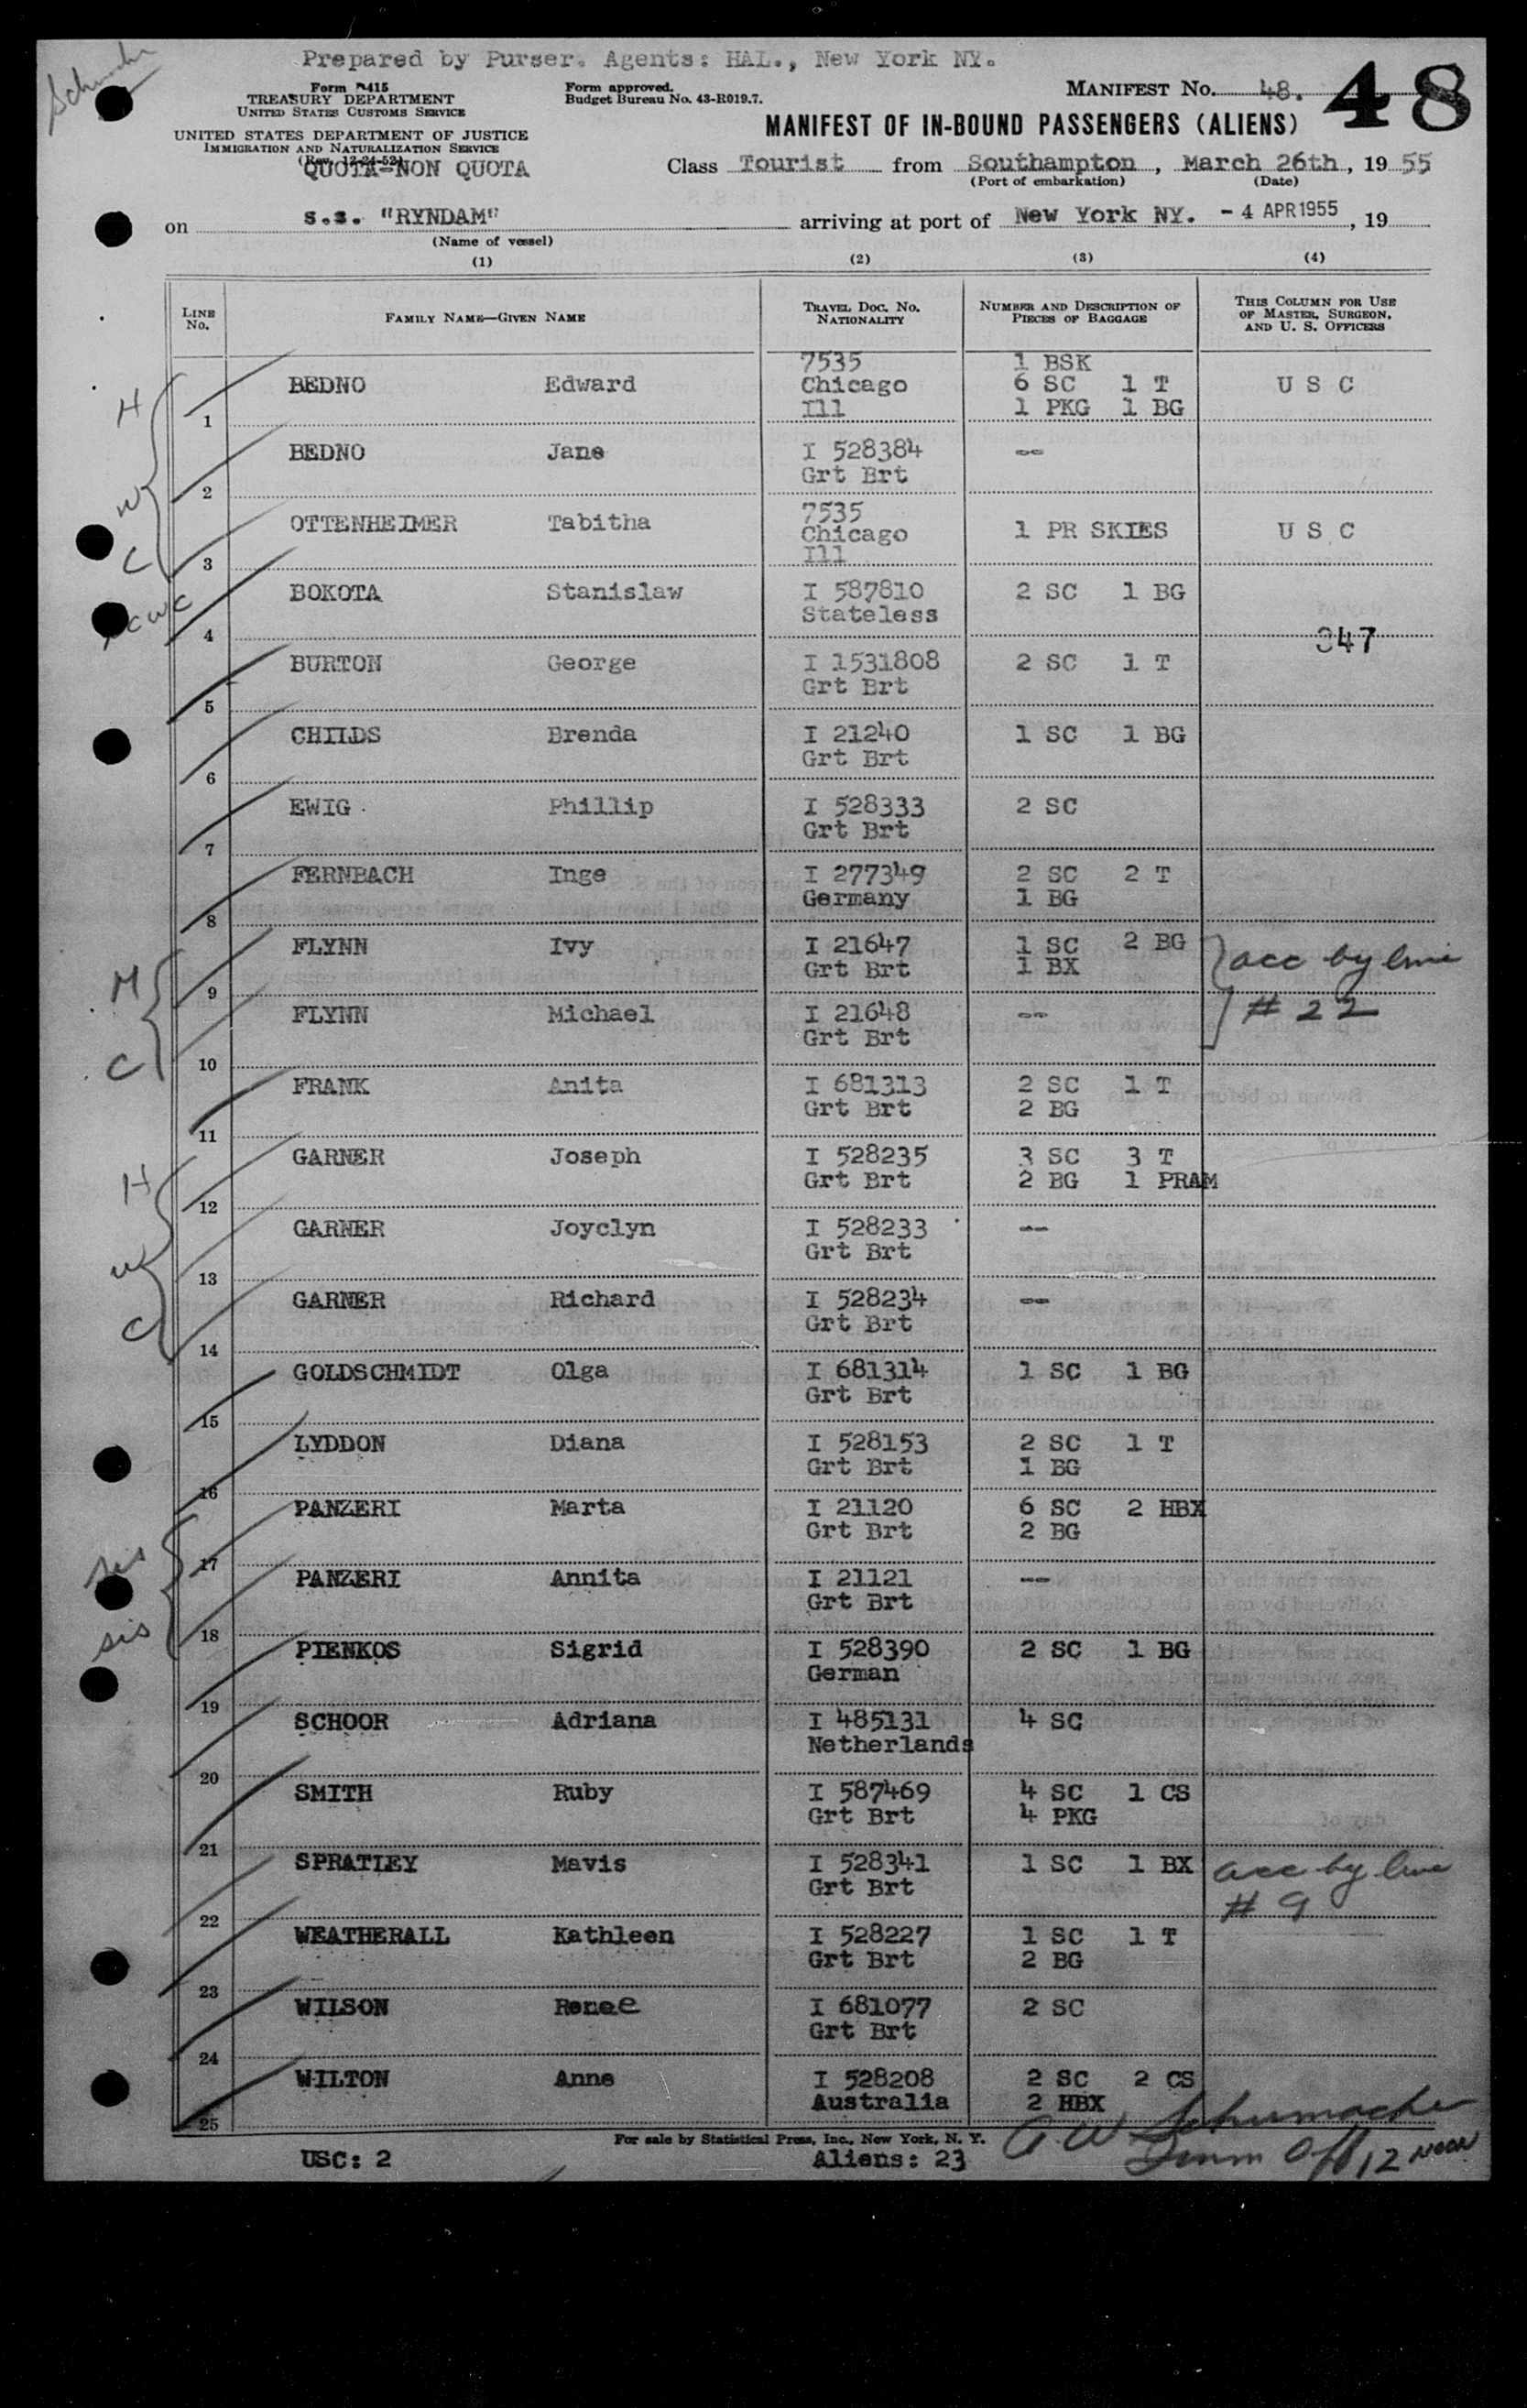 Prepared by Purser. Agents: HAL., New York NY.
Form I-415
TREASURY DEPARTMENT
UNITED STATES CUSTOMS SERVICE
Form approved.
Budget Bureau No. 43-R019.7.
MANIFEST No. 48.
48
UNITED STATES DEPARTMENT OF JUSTICE
IMMIGRATION AND NATURALIZATION SERVICE
(Rev. 12-24-52)
QUOTA-NON QUOTA
MANIFEST OF IN-BOUND PASSENGERS (ALIENS)
Class Tourist from Southampton, March 26th, 19 55
(Port of embarkation) (Date)
on s.s. "RYNDAM" arriving at port of New York NY. - 4 APR 1955, 19
(Name of vessel)
(1) (2) (3) (4)
LINE No. FAMILY NAME—GIVEN NAME TRAVEL DOC. No. NATIONALITY NUMBER AND DESCRIPTION OF PIECES OF BAGGAGE THIS COLUMN FOR USE OF MASTER, SURGEON, AND U. S. OFFICERS
7535 1 BSK
H BEDNO Edward Chicago 6 SC 1 T U S C
1 Ill 1 PKG 1 BG
BEDNO Jane I 528384 --
W 2 Grt Brt
OTTENHEIMER Tabitha 7535
Chicago 1 PR SKIES U S C
C 3 Ill
BOKOTA Stanislaw I 587810 2 SC 1 BG
4 Stateless
847
BURTON George I 1531808 2 SC 1 T
5 Grt Brt
CHILDS Brenda I 21240 1 SC 1 BG
6 Grt Brt
EWIG Phillip I 528333 2 SC
7 Grt Brt
FERNBACH Inge I 277349 2 SC 2 T
8 Germany 1 BG
FLYNN Ivy I 21647 1 SC 2 BG
M 9 Grt Brt 1 BX acc by line
FLYNN Michael I 21648 -- # 22
C 10 Grt Brt
FRANK Anita I 681313 2 SC 1 T
11 Grt Brt 2 BG
GARNER Joseph I 528235 3 SC 3 T
H 12 Grt Brt 2 BG 1 PRAM
GARNER Joyclyn I 528233 --
W 13 Grt Brt
GARNER Richard I 528234 --
C 14 Grt Brt
GOLDSCHMIDT Olga I 681314 1 SC 1 BG
15 Grt Brt
LYDDON Diana I 528153 2 SC 1 T
16 Grt Brt 1 BG
PANZERI Marta I 21120 6 SC 2 HBX
sis 17 Grt Brt 2 BG
PANZERI Annita I 21121 --
sis 18 Grt Brt
PIENKOS Sigrid I 528390 2 SC 1 BG
19 German
SCHOOR Adriana I 485131 4 SC
20 Netherlands
SMITH Ruby I 587469 4 SC 1 CS
21 Grt Brt 4 PKG
SPRATLEY Mavis I 528341 1 SC 1 BX acc by line
22 Grt Brt # 9
WEATHERALL Kathleen I 528227 1 SC 1 T
23 Grt Brt 2 BG
WILSON Renee I 681077 2 SC
24 Grt Brt
WILTON Anne I 528208 2 SC 2 CS
25 Australia 2 HBX
For sale by Statistical Press, Inc., New York, N. Y.
USC: 2 Aliens: 23
A W Schumacher
Imm Off 12 NOON